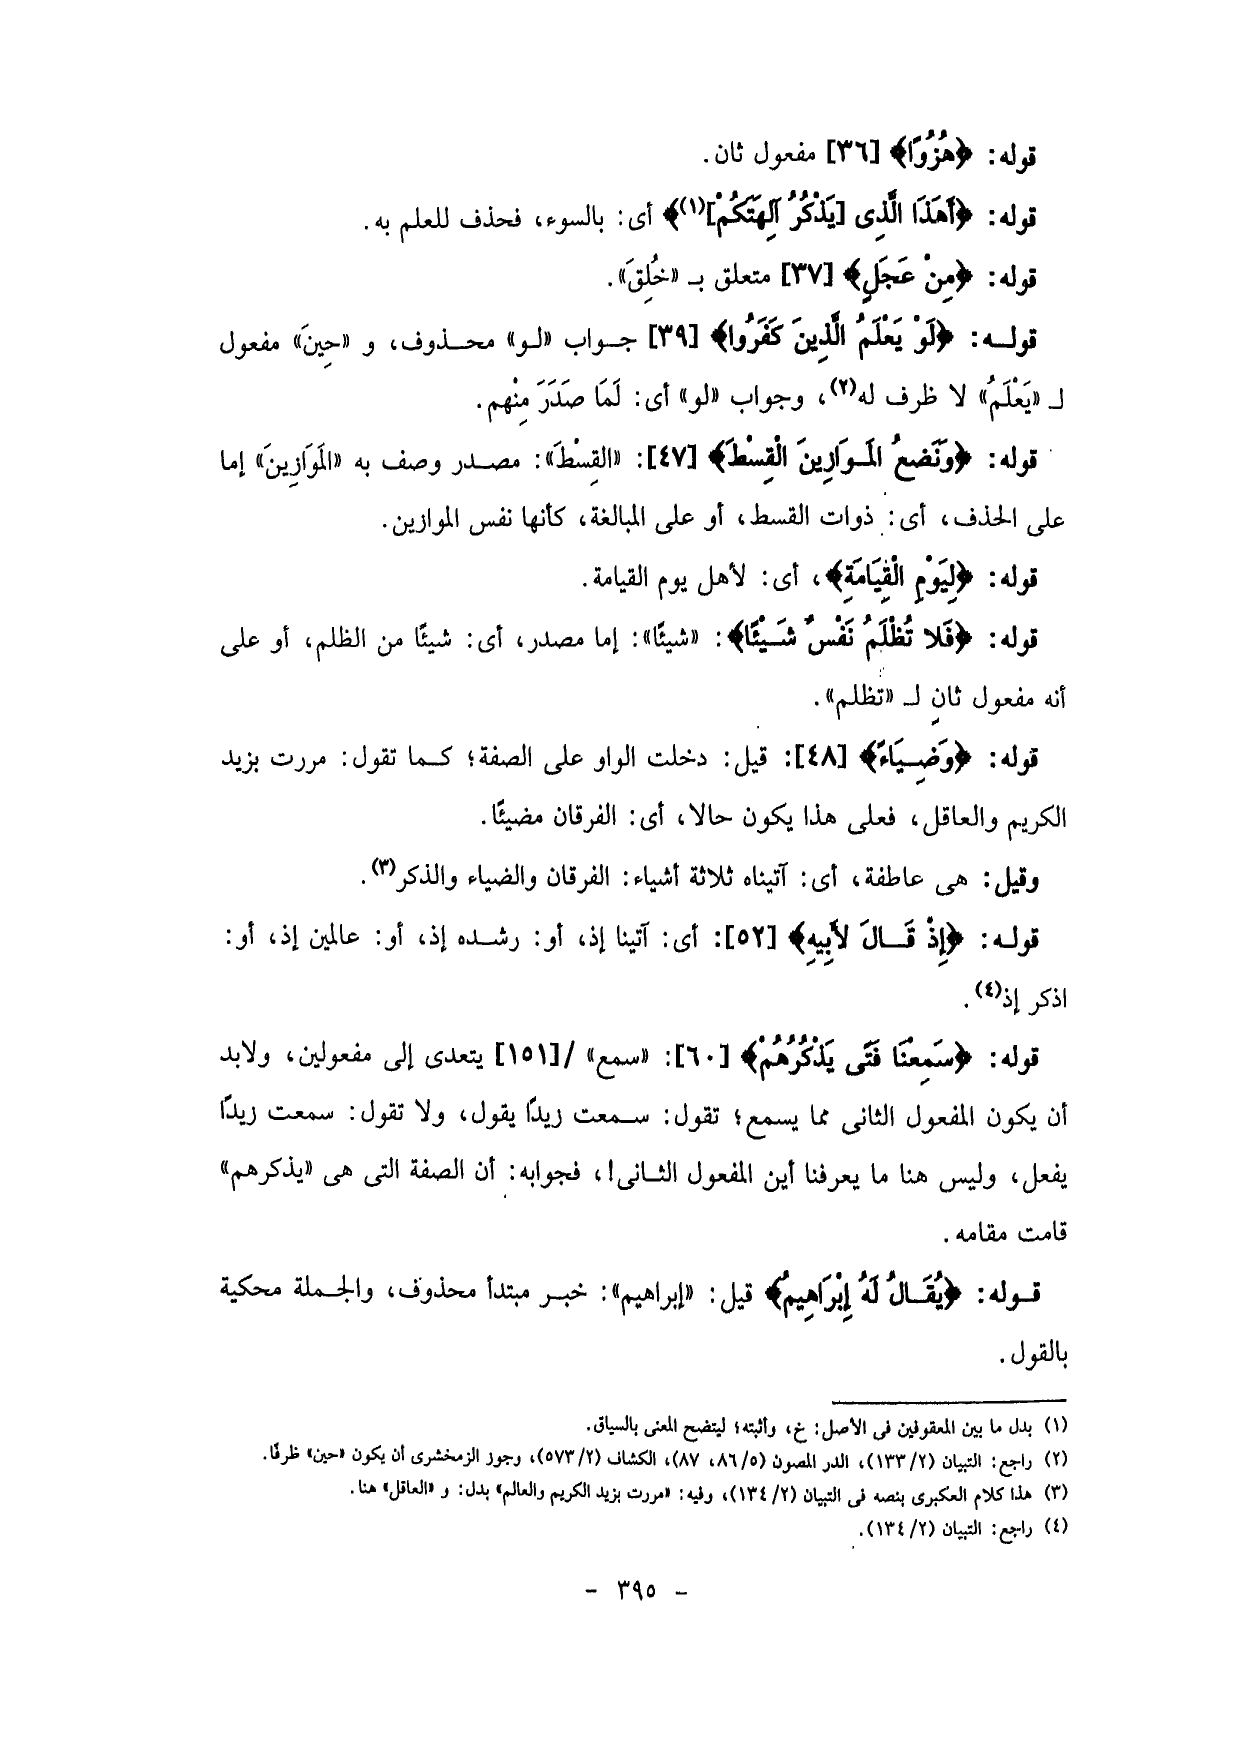 قوله: ﴿هُزُوًا﴾ [٣٦] مفعول ثان.
قوله: ﴿أَهَذَا الَّذِى [يَذْكُرُ آلِهَتَكُمْ](١)﴾ أى: بالسوء، فحذف للعلم به.
قوله: ﴿مِنْ عَجَلٍ﴾ [٣٧] متعلق بـ «خُلِقَ».
قولـه: ﴿لَوْ يَعْلَمُ الَّذِينَ كَفَرُوا﴾ [٣٩] جـواب «لـو» محـذوف، و «حِينَ» مفعول
لـ «يَعْلَمُ» لا ظرف له(٢)، وجواب «لو» أى: لَمَا صَدَرَ مِنْهم.
قوله: ﴿وَنَضَعُ الْمَوَازِينَ الْقِسْطَ﴾ [٤٧]: «القِسْطَ»: مصـدر وصف به «الْمَوَازِينَ» إما
على الحذف، أى: ذوات القسط، أو على المبالغة، كأنها نفس الموازين.
قوله: ﴿لِيَوْمِ الْقِيَامَةِ﴾، أى: لأهل يوم القيامة.
قوله: ﴿فَلا تُظْلَمُ نَفْسٌ شَـيْئًا﴾: «شيئًا»: إما مصدر، أى: شيئًا من الظلم، أو على
أنه مفعول ثانٍ لـ «تظلم».
قوله: ﴿وَضِـيَاءً﴾ [٤٨]: قيل: دخلت الواو على الصفة؛ كـما تقول: مررت بزيد
الكريم والعاقل، فعلى هذا يكون حالا، أى: الفرقان مضيئًا.
وقيل: هى عاطفة، أى: آتيناه ثلاثة أشياء: الفرقان والضياء والذكر(٣).
قولـه: ﴿إِذْ قَـالَ لأَبِيهِ﴾ [٥٢]: أى: آتينا إذ، أو: رشـده إذ، أو: عالمين إذ، أو:
اذكر إذ(٤).
قوله: ﴿سَمِعْنَا فَتًى يَذْكُرُهُمْ﴾ [٦٠]: «سمع» /[١٥١] يتعدى إلى مفعولين، ولابد
أن يكون المفعول الثانى مما يسمع؛ تقول: سـمعت زيدًا يقول، ولا تقول: سمعت زيدًا
يفعل، وليس هنا ما يعرفنا أين المفعول الثـانى!، فجوابه: أن الصفة التى هى «يذكرهم»
قامت مقامه.
قـوله: ﴿يُقَـالُ لَهُ إِبْرَاهِيمُ﴾ قيل: «إبراهيم»: خبـر مبتدأ محذوف، والجـملة محكية
بالقول.
(١) بدل ما بين المعقوفين فى الأصل: خ، وأثبته؛ ليتضح المعنى بالسياق.
(٢) راجع: التبيان (١٣٣/٢)، الدر المصون (٨٦/٥، ٨٧)، الكشاف (٥٧٣/٢)، وجوز الزمخشرى أن يكون «حين» ظرفًا.
(٣) هذا كلام العكبرى بنصه فى التبيان (١٣٤/٢)، وفيه: «مررت بزيد الكريم والعالم» بدل: و «العاقل» هنا.
(٤) راجع: التبيان (١٣٤/٢).
- ٣٩٥ -